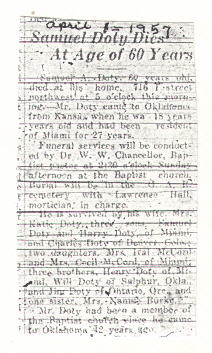 april 15 1957
Samuel Doty Dies
At Age of 60 Years
Samuel A. Doty, 60 years old,
died at his home, 716 F street
northwest, at 5 o'clock this morn-
ing. Mr. Doty came to Oklahoma
from Kansas when he wa 18 years
years old and had been resident
of Miami for 27 years.
Funeral services will be conduct-
ed by Dr. W. W. Chancellor, Bap-
tist pastor at 2:30 o'clock Sunday
afternoon at the Baptist church.
Burial will be in the G. A. R.
cemetery with Lawrence Hall,
mortician, in charge.
He is survived by his wife, Mrs.
Katie Doty, three sons, Samuel
Doty and Harry Doty, of Miami,
and Charles Doty of Denver, Colo.;
two daughters, Mrs. Iral McCord
and Mrs. Cecil McCord, of Miami,
three brothers, Henry Doty of Mi-
ami, Will Doty of Sulphur, Okla.,
and Jim Doty of Ontario, Ore., and
one sister, Mrs. Nannie Burke,
Mr. Doty had been a member of
the Baptist church since he came
to Oklahoma 42 years ago.